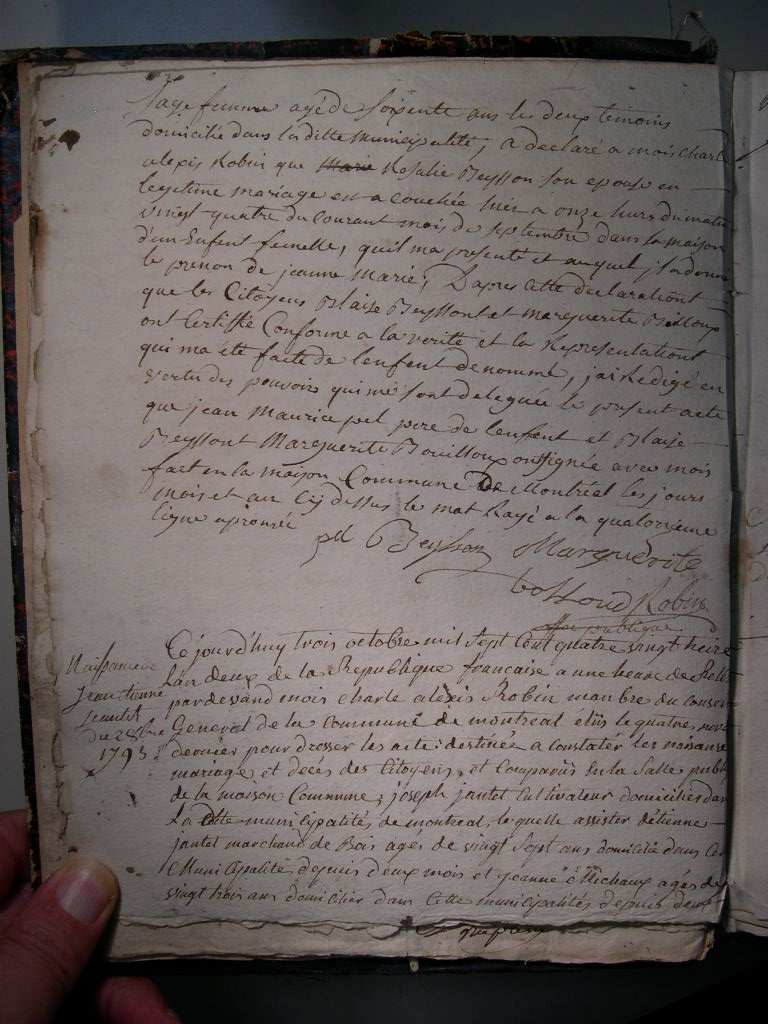 sage femme agé de Soixente ans les deux temoins
domicilié dans la ditte municipalité, a declaré a mois Charle
alexis Robin que Marie Rosalie Beysson son epouse en
legitime mariage est acouchée hier a onze hurs du matin
vingt quatre du courant mois de septembre dans sa maison
d'un Enfent femelle, quil ma presenté et auquel jl a donné
le prenon de jeanne Marie, Dapres cette declarationt
que les Citoyens Blaise Beyssont et Marguerite Boilloux
ont Certiffié Conforme a la verité et la Representationt
qui ma été faite de lenfent denommé, jai Redigé en
vertu des pouvoirs qui me sont delegués le present acte
que jean Maurice pel pere de lenfent et Blaise
Beyssont Marguerite Bouilloux ont signée avec mois
fait en la maison Commune De Montréal les jours
mois et an Cij dessus le mot Rayé a la quatorzieme
ligne aprouvée
pel Beysson Marguerite
bolloud Robin
offier publique
Naissance
jean etienne
jeantet
du 2 8bre
1793
Ce jourd'huy trois octobre mil sept Cent quatre vingt treize
Lan deux de la Republique francaise a une heure de Rele
pardevand mois charle aléxis Robin manbre du conseil
General de la commune de montreal élus le quatre
dernier pour dresser les acte: destinée a constatér les naisanse
mariage et decés des Citoyens, et Comparus En la Salle publi
de la maison Commune, joseph jantet Cultivateur domiciliés dan
La dite municipalités de montreal, lequelle assister détienne
jantet marchand de Bois ages de vingt sept ans domicilié dans Ce
Municipalité depuis deux mois et jeanne Michaux agés de
vingt trois ans domicilier dans Cette municipalités depuis deux